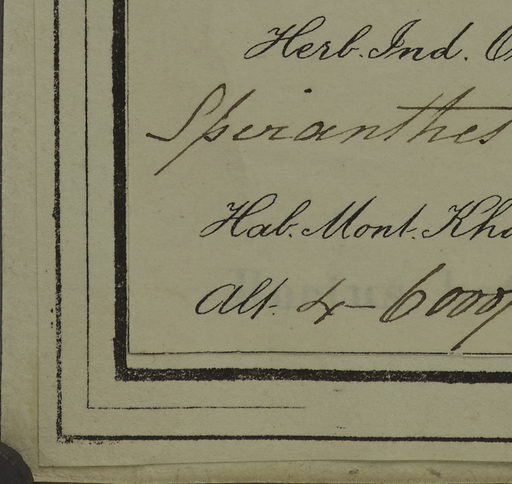 Herb. Ind. O
Spiranthes
Hab. Mont. Kha
Alt. 4-6000